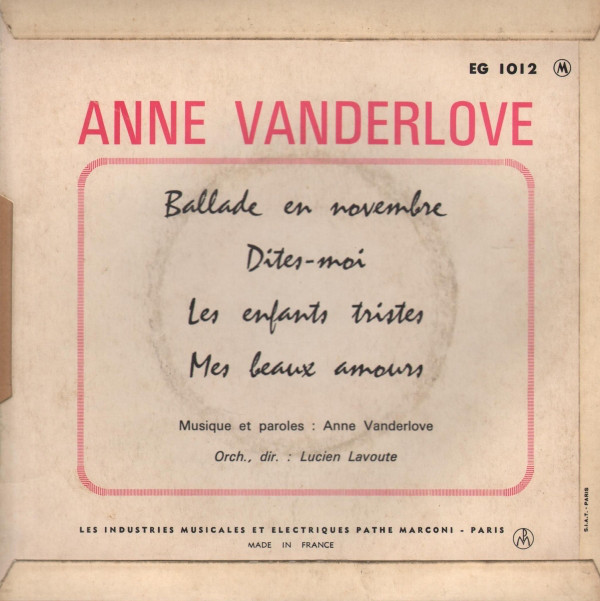 EG 1012 M
ANNE VANDERLOVE
Ballade en novembre
Dites-moi
Les enfants tristes
Mes beaux amours
Musique et paroles : Anne Vanderlove
Orch., dir. : Lucien Lavoute
LES INDUSTRIES MUSICALES ET ELECTRIQUES PATHE MARCONI - PARIS
MADE IN FRANCE
S.I.A.T. - PARIS